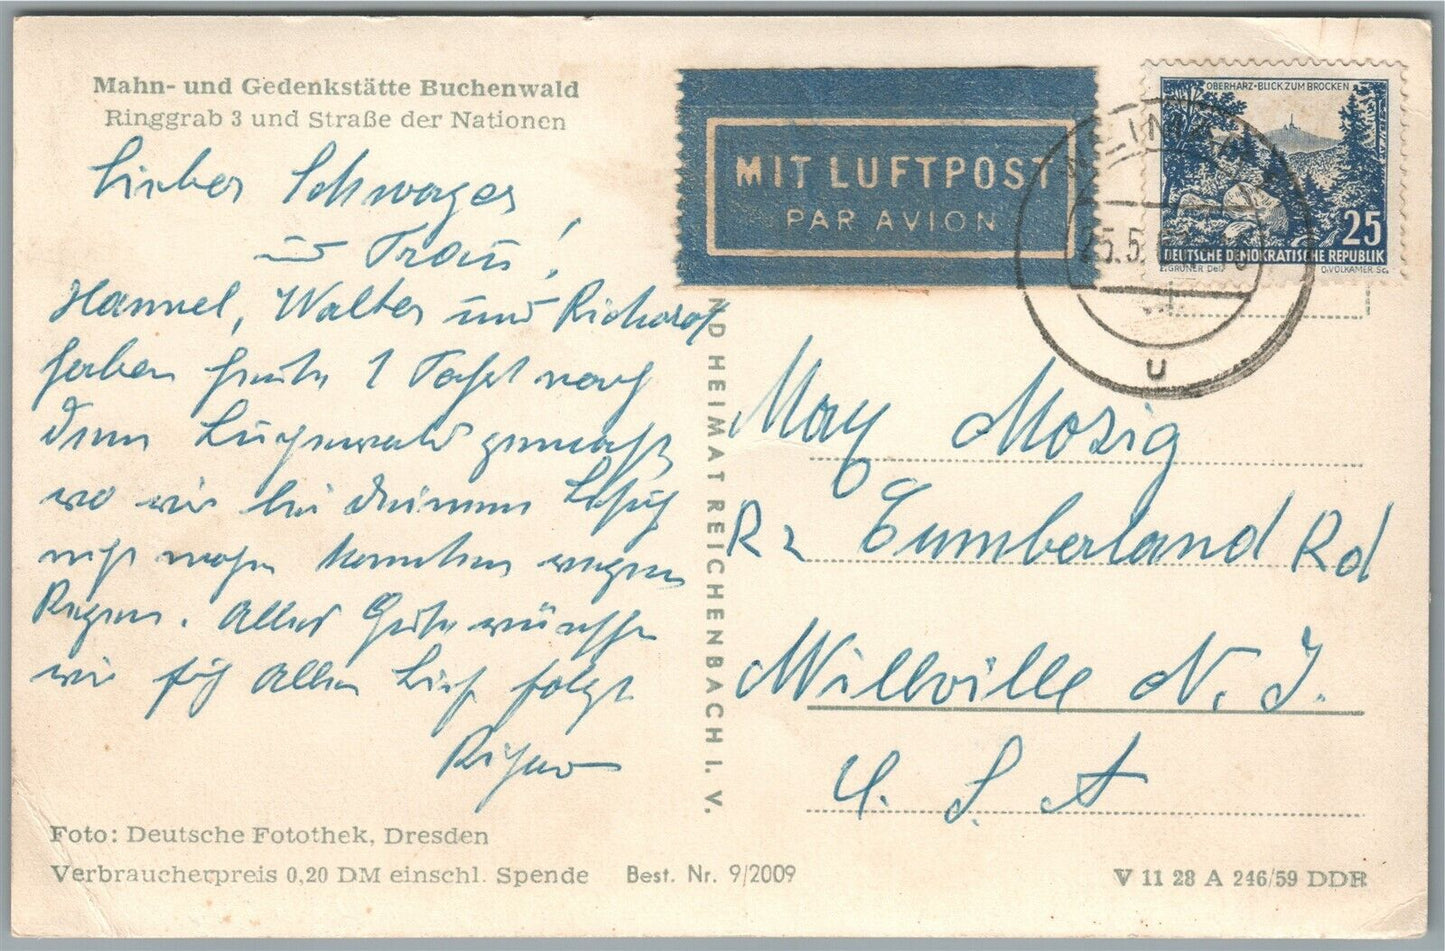 Mahn- und Gedenkstätte Buchenwald
Ringgrab 3 und Straße der Nationen
Lieber Schwager
und Frau!
Hannel, Walter und Richard
haben heute 1 Fahrt nach
dem gemacht
wo wir bei deinem
nicht mehr konnten wegen
Regen. Alles Gute wünschen
wir für Allen Brief folgt
Foto: Deutsche Fotothek, Dresden
Verbraucherpreis 0,20 DM einschl. Spende
Best. Nr. 9/2009
V 11 28 A 246/59 DDR
ND HEIMAT REICHENBACH I. V.
MIT LUFTPOST
PAR AVION
OBERHARZ-BLICK ZUM BROCKEN
25
DEUTSCHE DEMOKRATISCHE REPUBLIK
E. GRUNER Del.
O. VOLKAMER Sc.
WEIMAR
25.5.
u
May Mosig
R 2 Cumberland Rd
Millville N. J.
U. S. A